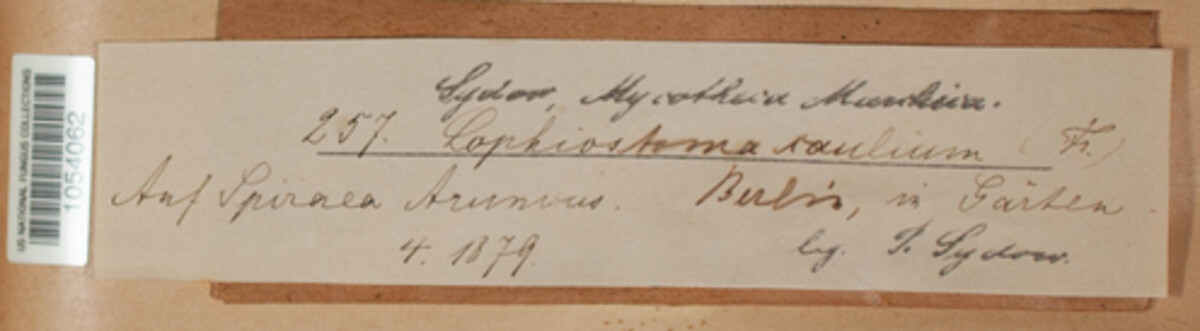 US NATIONAL FUNGUS COLLECTIONS
1054062
Sydow, Mycotheca Marchica.
257. Lophiostoma caulium (Fr.)
Auf Spiraea Aruncus. Berlin, in Gärten.
4. 1879. leg. P. Sydow.